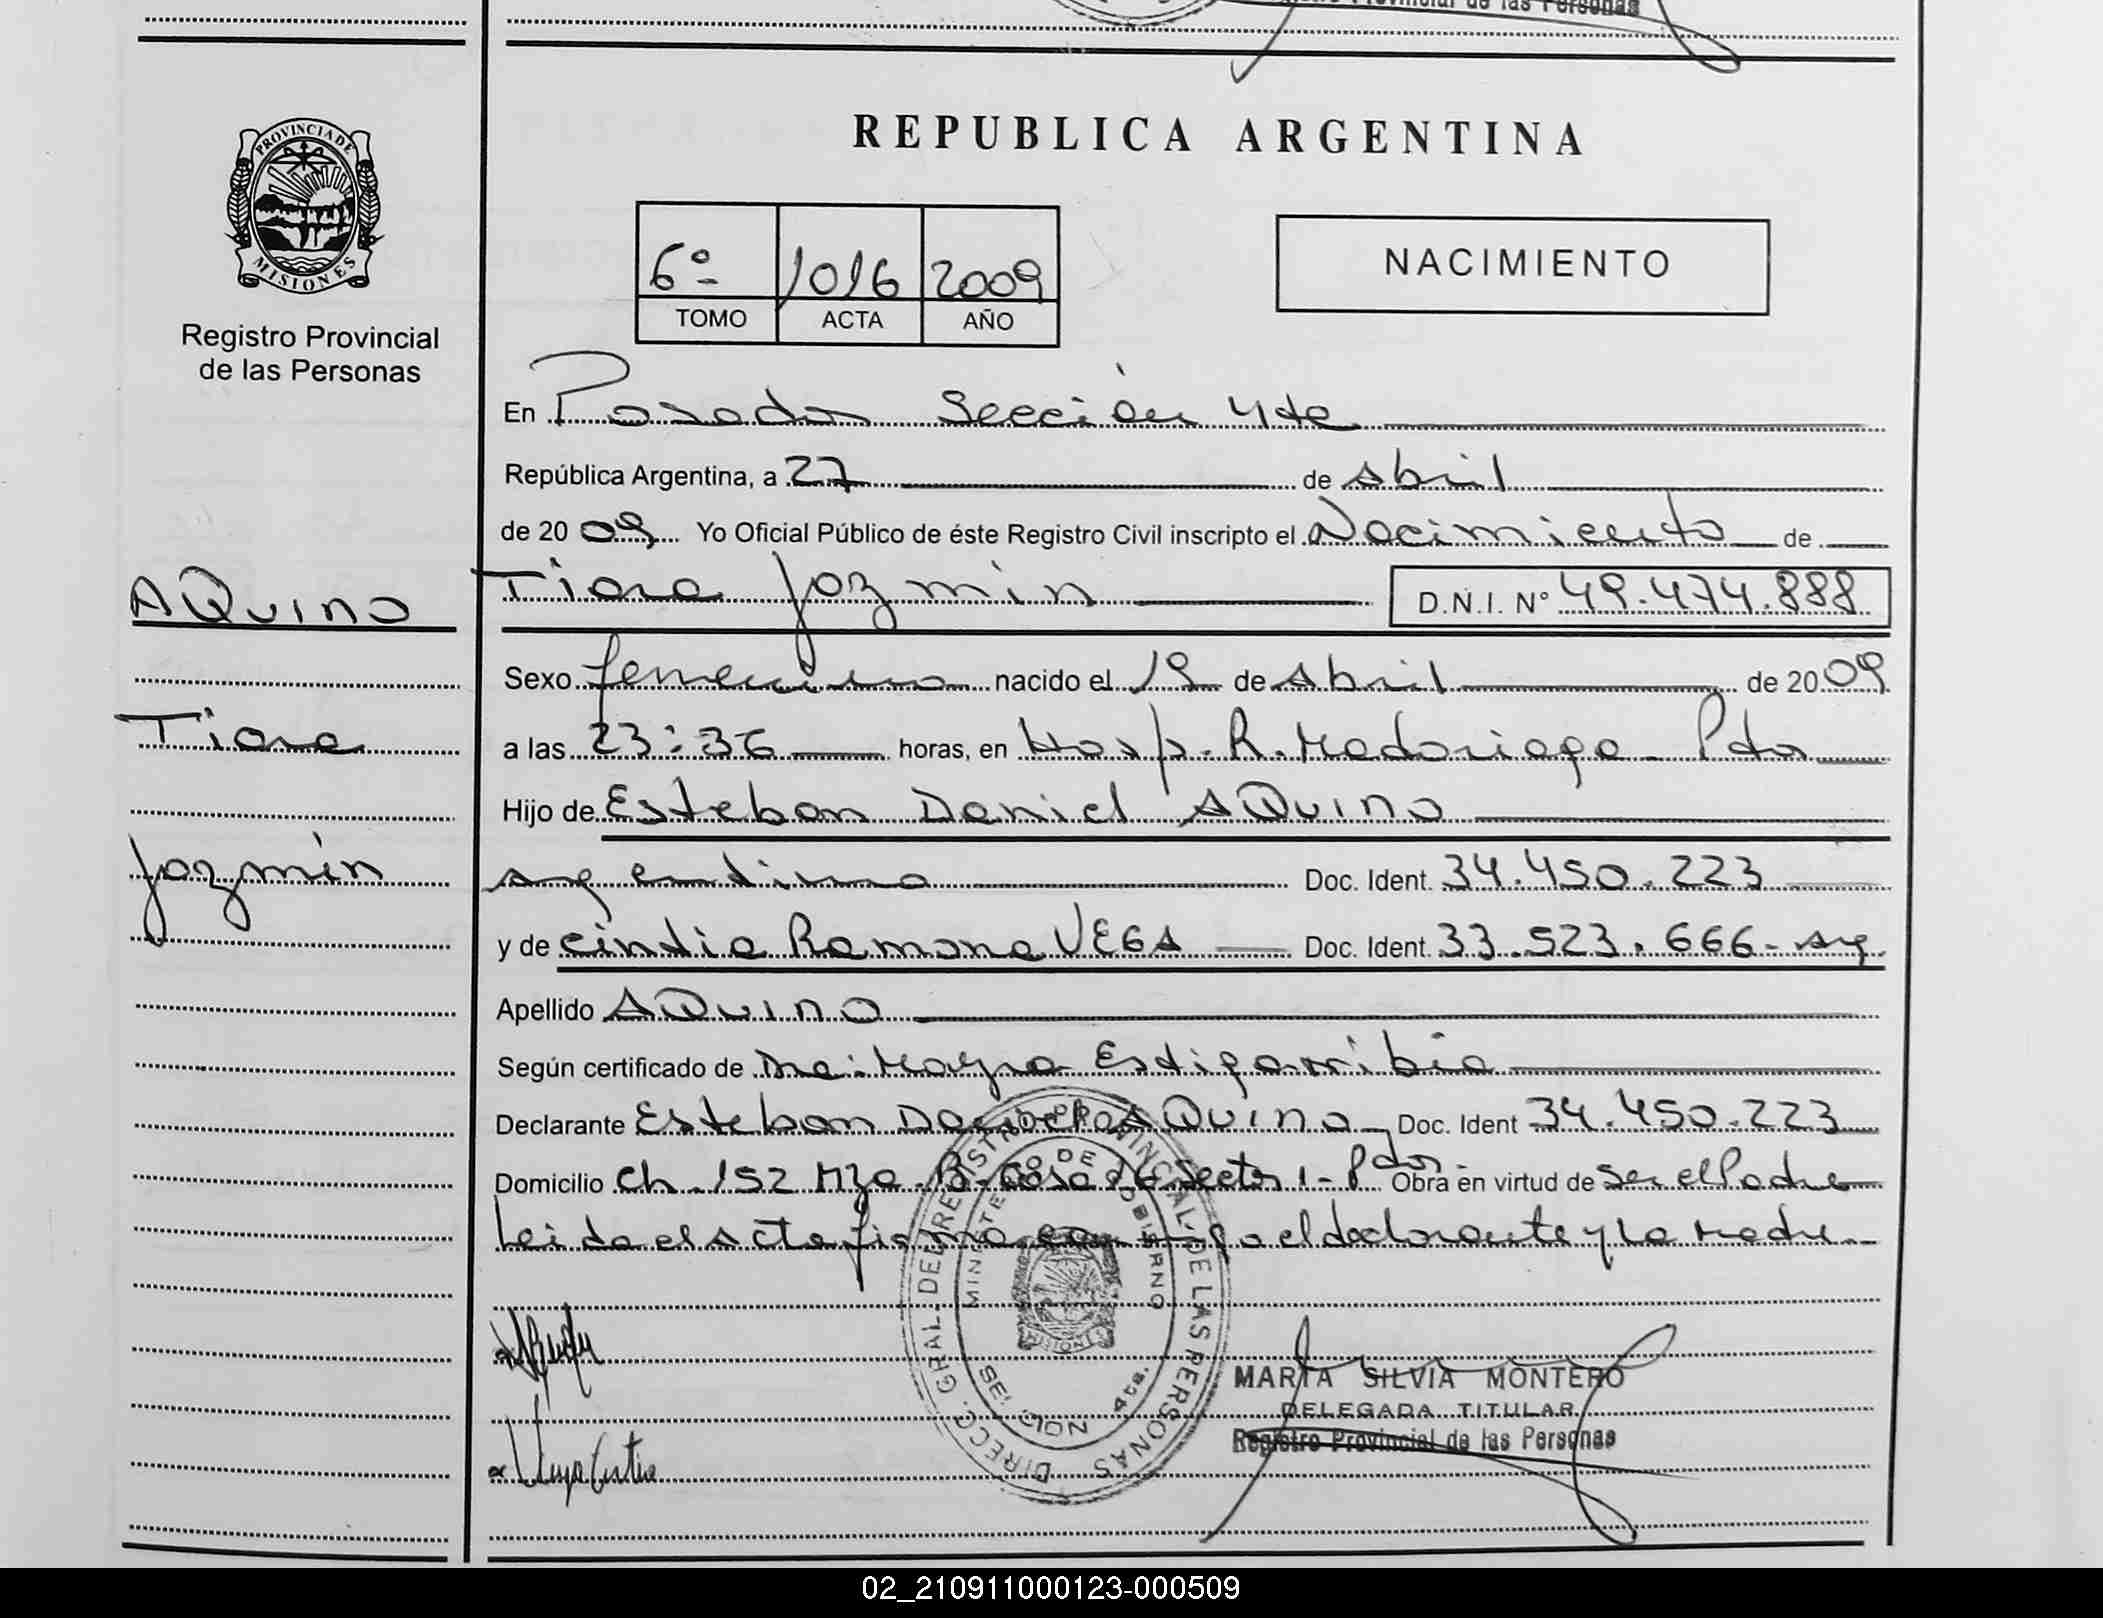 Registro Provincial de las Personas
PROVINCIA DE
MISIONES
Registro Provincial
de las Personas
REPUBLICA ARGENTINA
6º 1016 2009
TOMO ACTA AÑO
NACIMIENTO
En Posadas Sección 4ta
República Argentina, a 27 de Abril
de 2009 Yo Oficial Público de éste Registro Civil inscripto el Nacimiento de
AQuino
Tiara Jazmin D.N.I. Nº 49.474.888
Sexo femenino nacido el 19 de Abril de 2009
Tiara
a las 23:36 horas, en Hosp. R. Madariaga - Pdas
Hijo de Esteban Daniel AQuino
Jazmín
argentino Doc. Ident. 34.450.223
y de Cintia Ramona VEGA Doc. Ident. 33.523.666 - arg
Apellido AQuino
Según certificado de Dra: Mayra Estigarribia
Declarante Esteban Daniel AQuino Doc. Ident 34.450.223
Domicilio Ch. 152 Mza B casa 26 Sector 1 - Pdas - Obra en virtud de ser el Padre
Leida el Acta firma conmigo el declarante y la Madre
DIRECC. GRAL. DEL REGISTRO PROVINCIAL DE LAS PERSONAS
MINISTERIO DE GOBIERNO
SECCION 4ta.
MARTA SILVIA MONTERO
DELEGADA TITULAR
Registro Provincial de las Personas
02_210911000123-000509